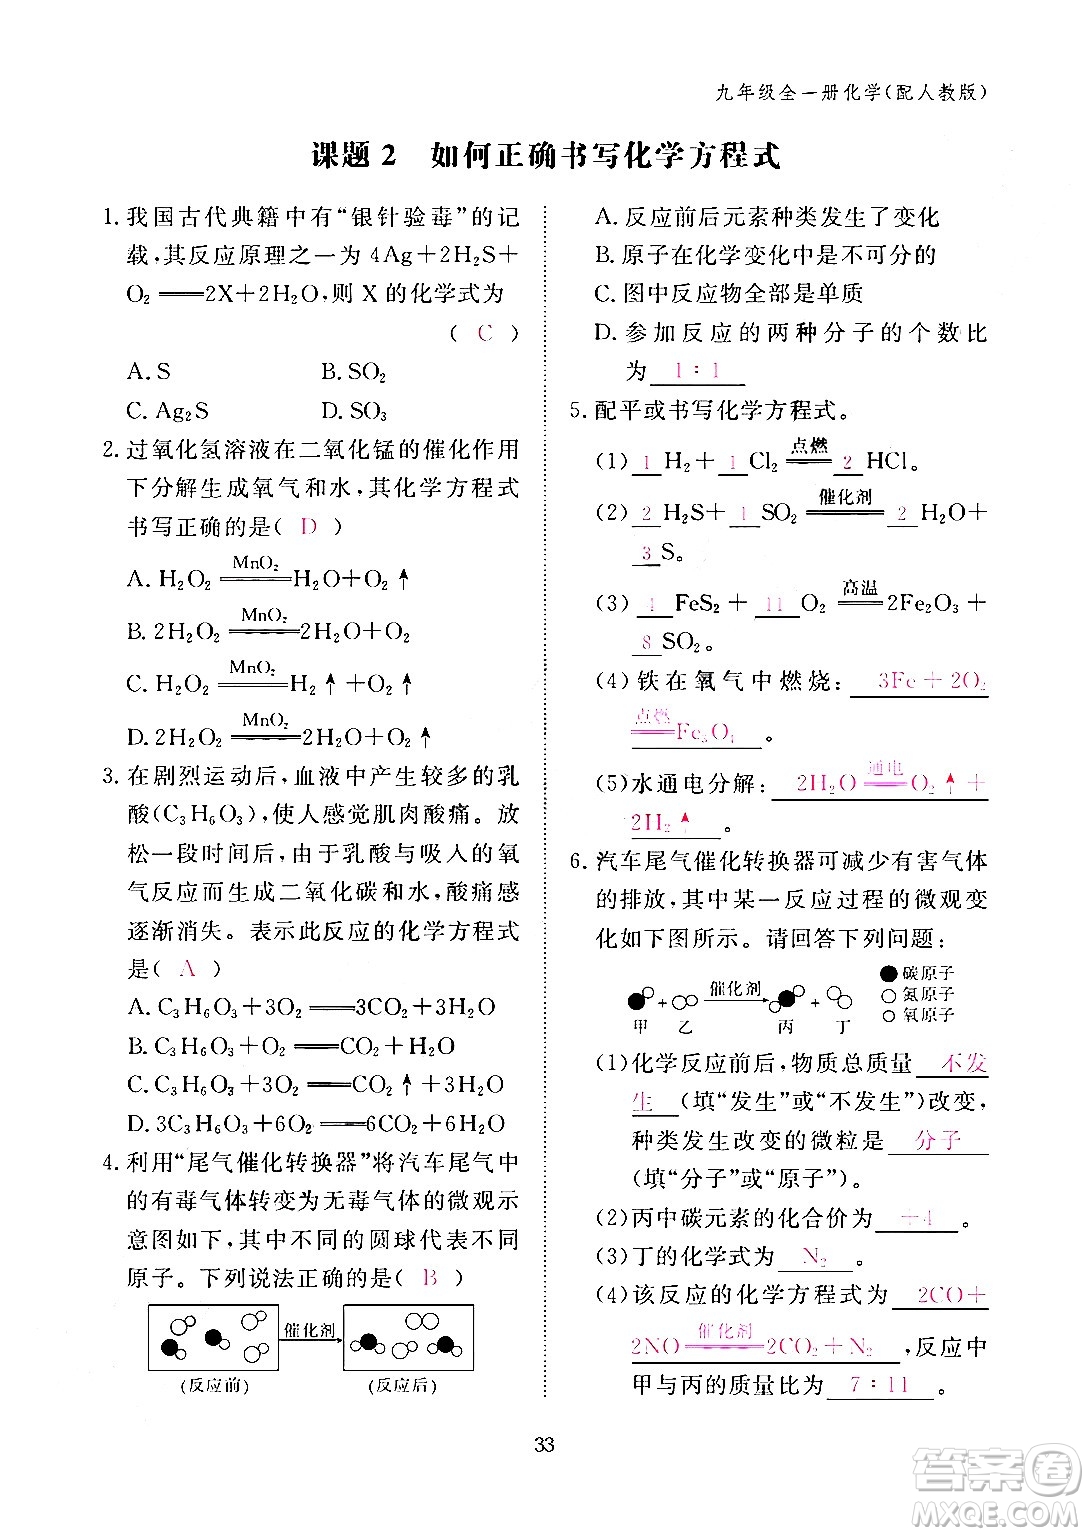 九年级全一册化学(配人教版)
课题 2　如何正确书写化学方程式
1. 我国古代典籍中有“银针验毒”的记
载,其反应原理之一为 4Ag+2H₂S+
O₂ ══2X+2H₂O,则 X 的化学式为
( C )
A. S　　B. SO₂
C. Ag₂S　　D. SO₃
2. 过氧化氢溶液在二氧化锰的催化作用
下分解生成氧气和水,其化学方程式
书写正确的是( D )
MnO₂
A. H₂O₂ ══H₂O+O₂↑
MnO₂
B. 2H₂O₂ ══2H₂O+O₂
MnO₂
C. H₂O₂ ══H₂↑+O₂↑
MnO₂
D. 2H₂O₂ ══2H₂O+O₂↑
3. 在剧烈运动后,血液中产生较多的乳
酸(C₃H₆O₃),使人感觉肌肉酸痛。放
松一段时间后,由于乳酸与吸入的氧
气反应而生成二氧化碳和水,酸痛感
逐渐消失。表示此反应的化学方程式
是( A )
A. C₃H₆O₃+3O₂ ══3CO₂+3H₂O
B. C₃H₆O₃+O₂ ══CO₂+H₂O
C. C₃H₆O₃+3O₂ ══CO₂↑+3H₂O
D. 3C₃H₆O₃+6O₂ ══6CO₂+6H₂O
4. 利用“尾气催化转换器”将汽车尾气中
的有毒气体转变为无毒气体的微观示
意图如下,其中不同的圆球代表不同
原子。下列说法正确的是( B )
催化剂
(反应前)　(反应后)
A. 反应前后元素种类发生了变化
B. 原子在化学变化中是不可分的
C. 图中反应物全部是单质
D. 参加反应的两种分子的个数比
为 1∶1
5. 配平或书写化学方程式。
点燃
(1) 1 H₂+ 1 Cl₂ ══ 2 HCl。
催化剂
(2) 2 H₂S+ 1 SO₂ ══ 2 H₂O+
3 S。
高温
(3) 4 FeS₂+ 11 O₂ ══2Fe₂O₃+
8 SO₂。
(4)铁在氧气中燃烧: 3Fe+2O₂
点燃
══Fe₃O₄ 。
通电
(5)水通电分解: 2H₂O══O₂↑+
2H₂↑ 。
6. 汽车尾气催化转换器可减少有害气体
的排放,其中某一反应过程的微观变
化如下图所示。请回答下列问题:
+　催化剂　+
甲　乙　丙　丁
碳原子
氮原子
氧原子
(1)化学反应前后,物质总质量 不发
生 (填“发生”或“不发生”)改变,
种类发生改变的微粒是 分子
(填“分子”或“原子”)。
(2)丙中碳元素的化合价为 +4 。
(3)丁的化学式为 N₂ 。
(4)该反应的化学方程式为 2CO+
催化剂
2NO══2CO₂+N₂ ,反应中
甲与丙的质量比为 7∶11 。
33
答案圈
MXQE.COM